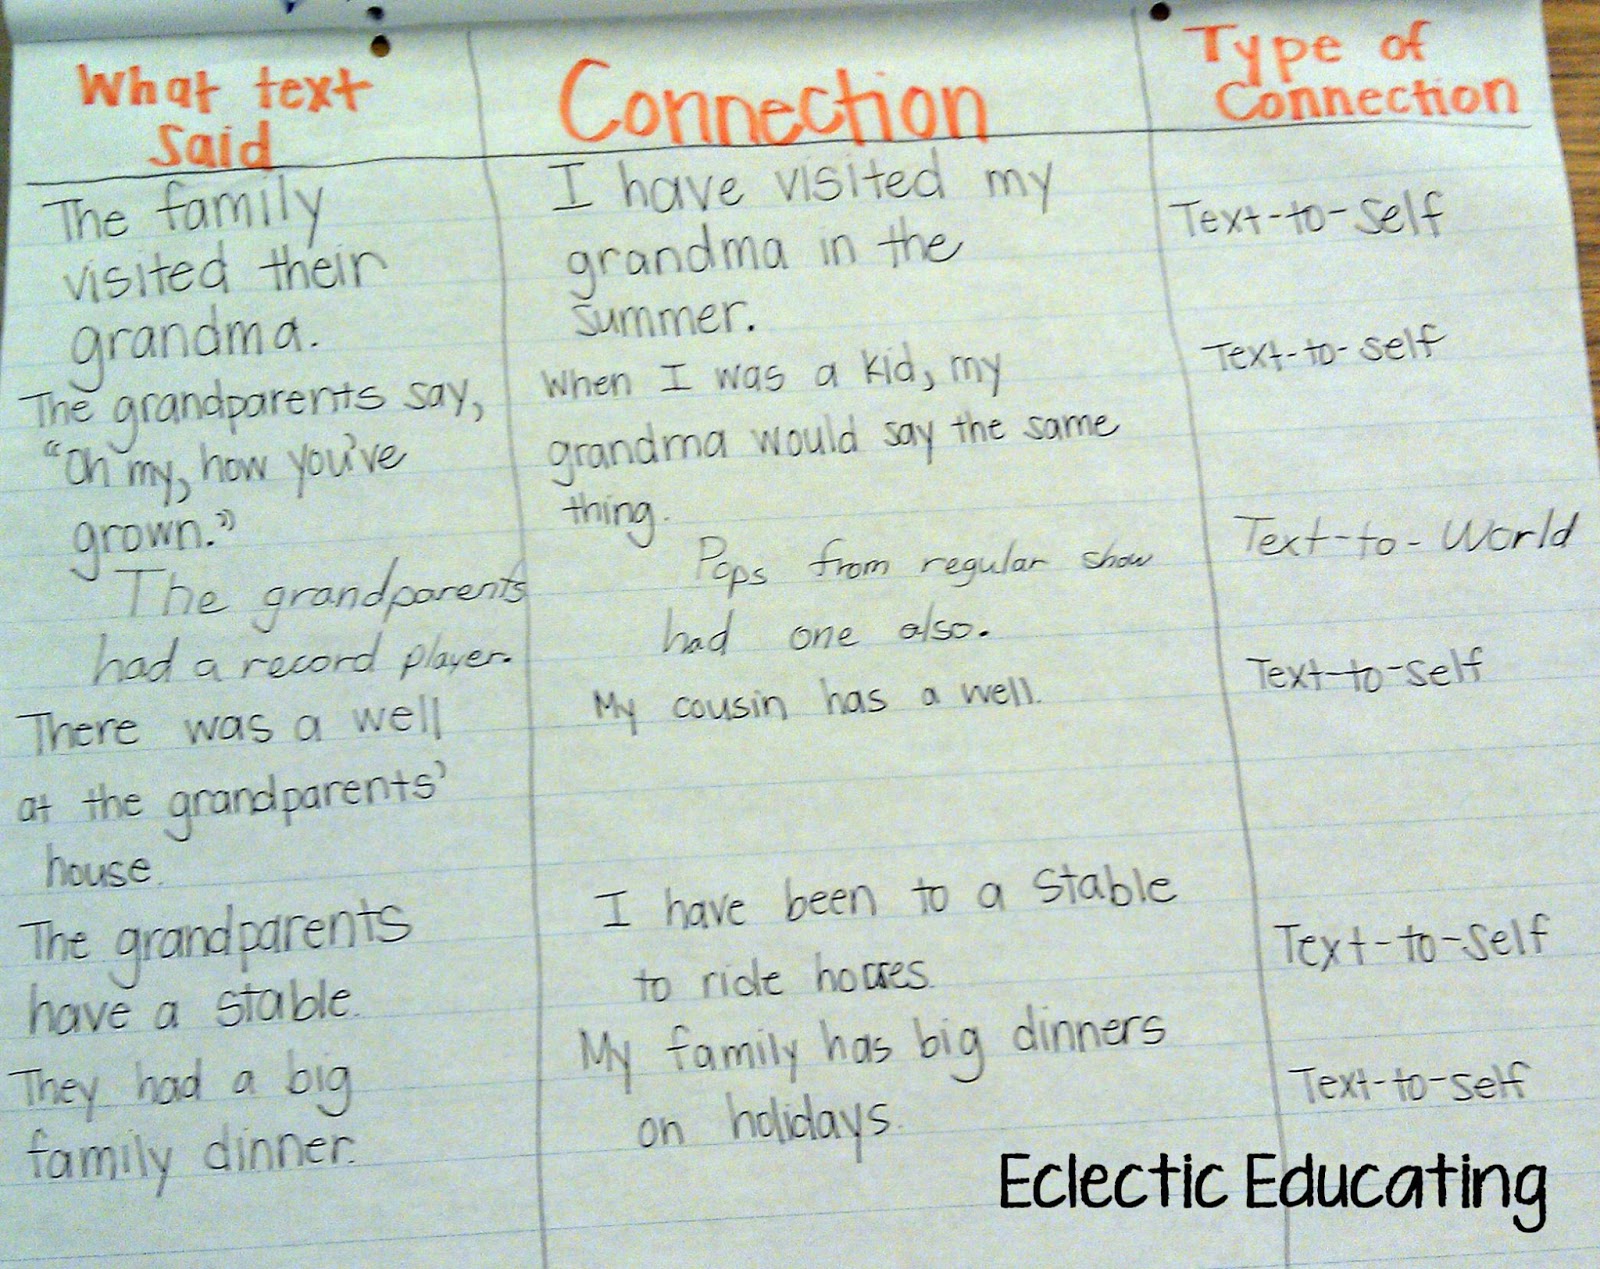 What text
said
Connection
Type of
Connection
The family
visited their
grandma.
I have visited my
grandma in the
summer.
Text-to-self
The grandparents say,
"Oh my, how you've
grown."
When I was a kid, my
grandma would say the same
thing.
Text-to-self
The grandparents
had a record player.
Pops from regular show
had one also.
Text-to-World
There was a well
at the grandparents'
house.
My cousin has a well.
Text-to-self
The grandparents
have a stable.
I have been to a stable
to ride horses.
Text-to-self
They had a big
family dinner.
My family has big dinners
on holidays.
Text-to-self
Eclectic Educating